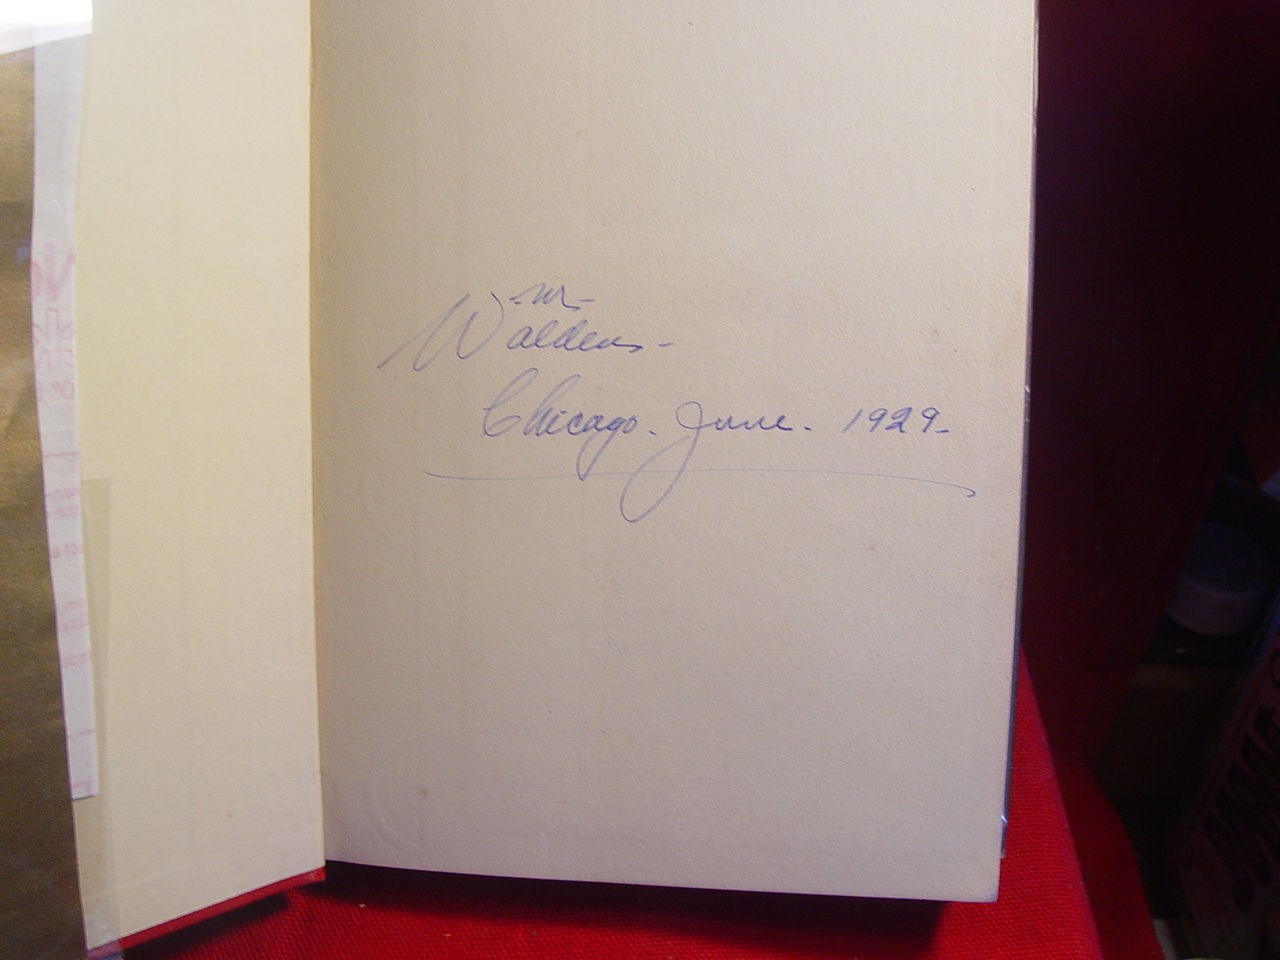 -W-
Waldens-
Chicago. June. 1929-